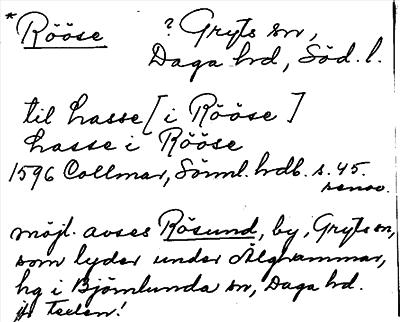 * Rööse ? Gryts sn,
Daga hd, Söd. l.
til hasse [i Rööse]
hasse i Rööse
1596 Collmar, Sörml. hdb. s. 45.
renov.
möjl. avses Rösund, by i Gryts sn,
som lyder under Älghammar,
hg i Björnlunda sn, Daga hd.
jfr Tecken!